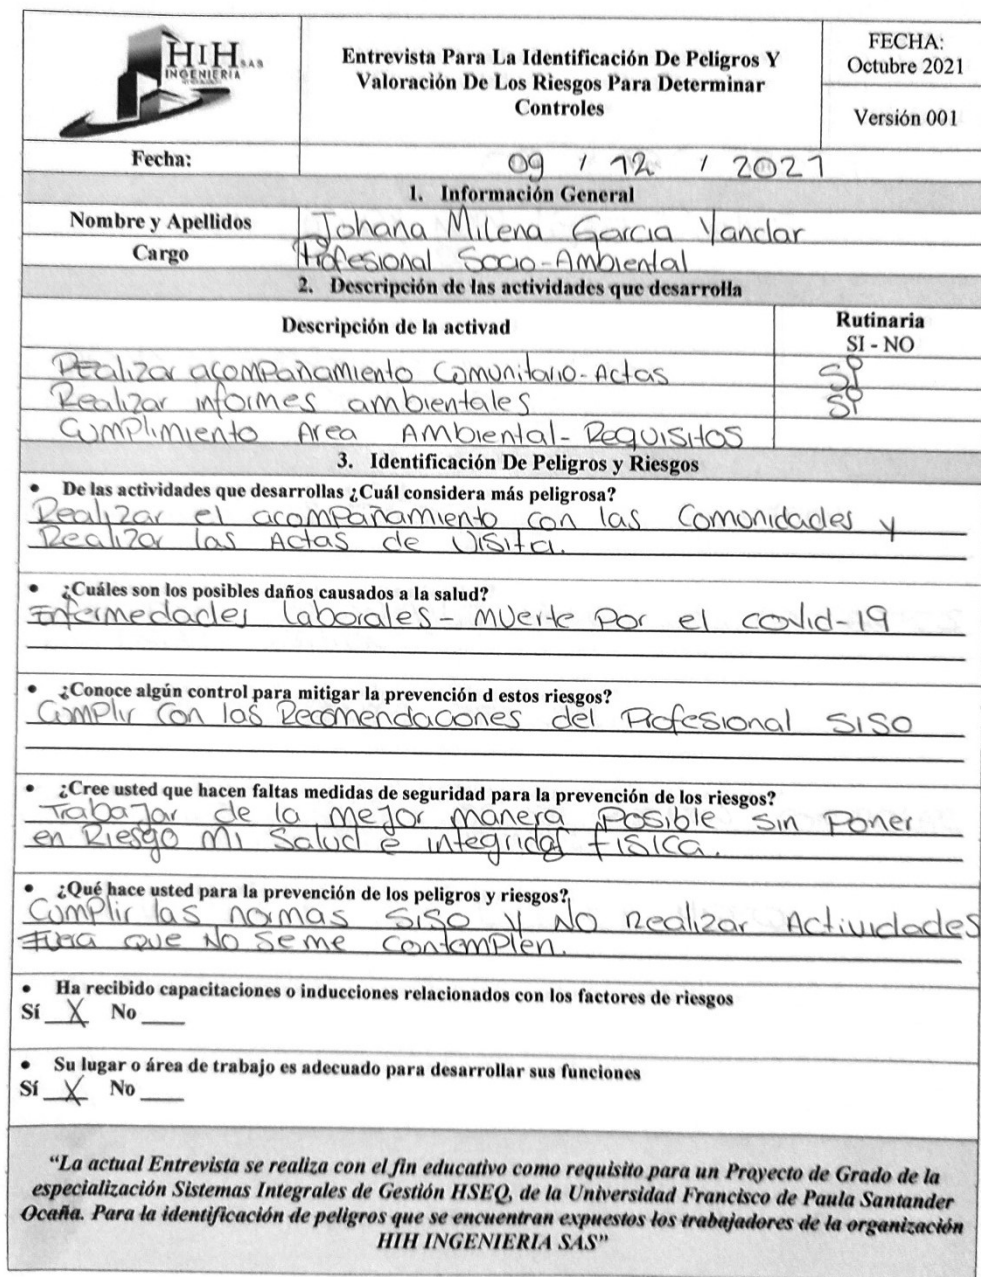 HIH SAS
INGENIERIA
Entrevista Para La Identificación De Peligros Y
Valoración De Los Riesgos Para Determinar
Controles
FECHA:
Octubre 2021
Versión 001
Fecha: 09 / 12 / 2021
1. Información General
Nombre y Apellidos Johana Milena Garcia Yandar
Cargo Profesional Socio-Ambiental
2. Descripción de las actividades que desarrolla
Descripción de la activad Rutinaria
SI - NO
Realizar acompañamiento Comunitario-Actas SI
Realizar informes ambientales SI
Cumplimiento Area Ambiental-Requisitos
3. Identificación De Peligros y Riesgos
• De las actividades que desarrollas ¿Cuál considera más peligrosa?
Realizar el acompañamiento con las Comunidades y
Realizar las Actas de Visita.
• ¿Cuáles son los posibles daños causados a la salud?
Enfermedades laborales - Muerte Por el covid-19
• ¿Conoce algún control para mitigar la prevención d estos riesgos?
Cumplir Con las Recomendaciones del Profesional SISO
• ¿Cree usted que hacen faltas medidas de seguridad para la prevención de los riesgos?
Trabajar de la mejor manera Posible sin Poner
en Riesgo mi Salud e integridad física.
• ¿Qué hace usted para la prevención de los peligros y riesgos?
Cumplir las normas SISO y No Realizar Actividades
Fuera que No Se me Contemplen.
• Ha recibido capacitaciones o inducciones relacionados con los factores de riesgos
Sí X No ____
• Su lugar o área de trabajo es adecuado para desarrollar sus funciones
Sí X No ____
“La actual Entrevista se realiza con el fin educativo como requisito para un Proyecto de Grado de la
especialización Sistemas Integrales de Gestión HSEQ, de la Universidad Francisco de Paula Santander
Ocaña. Para la identificación de peligros que se encuentran expuestos los trabajadores de la organización
HIH INGENIERIA SAS”